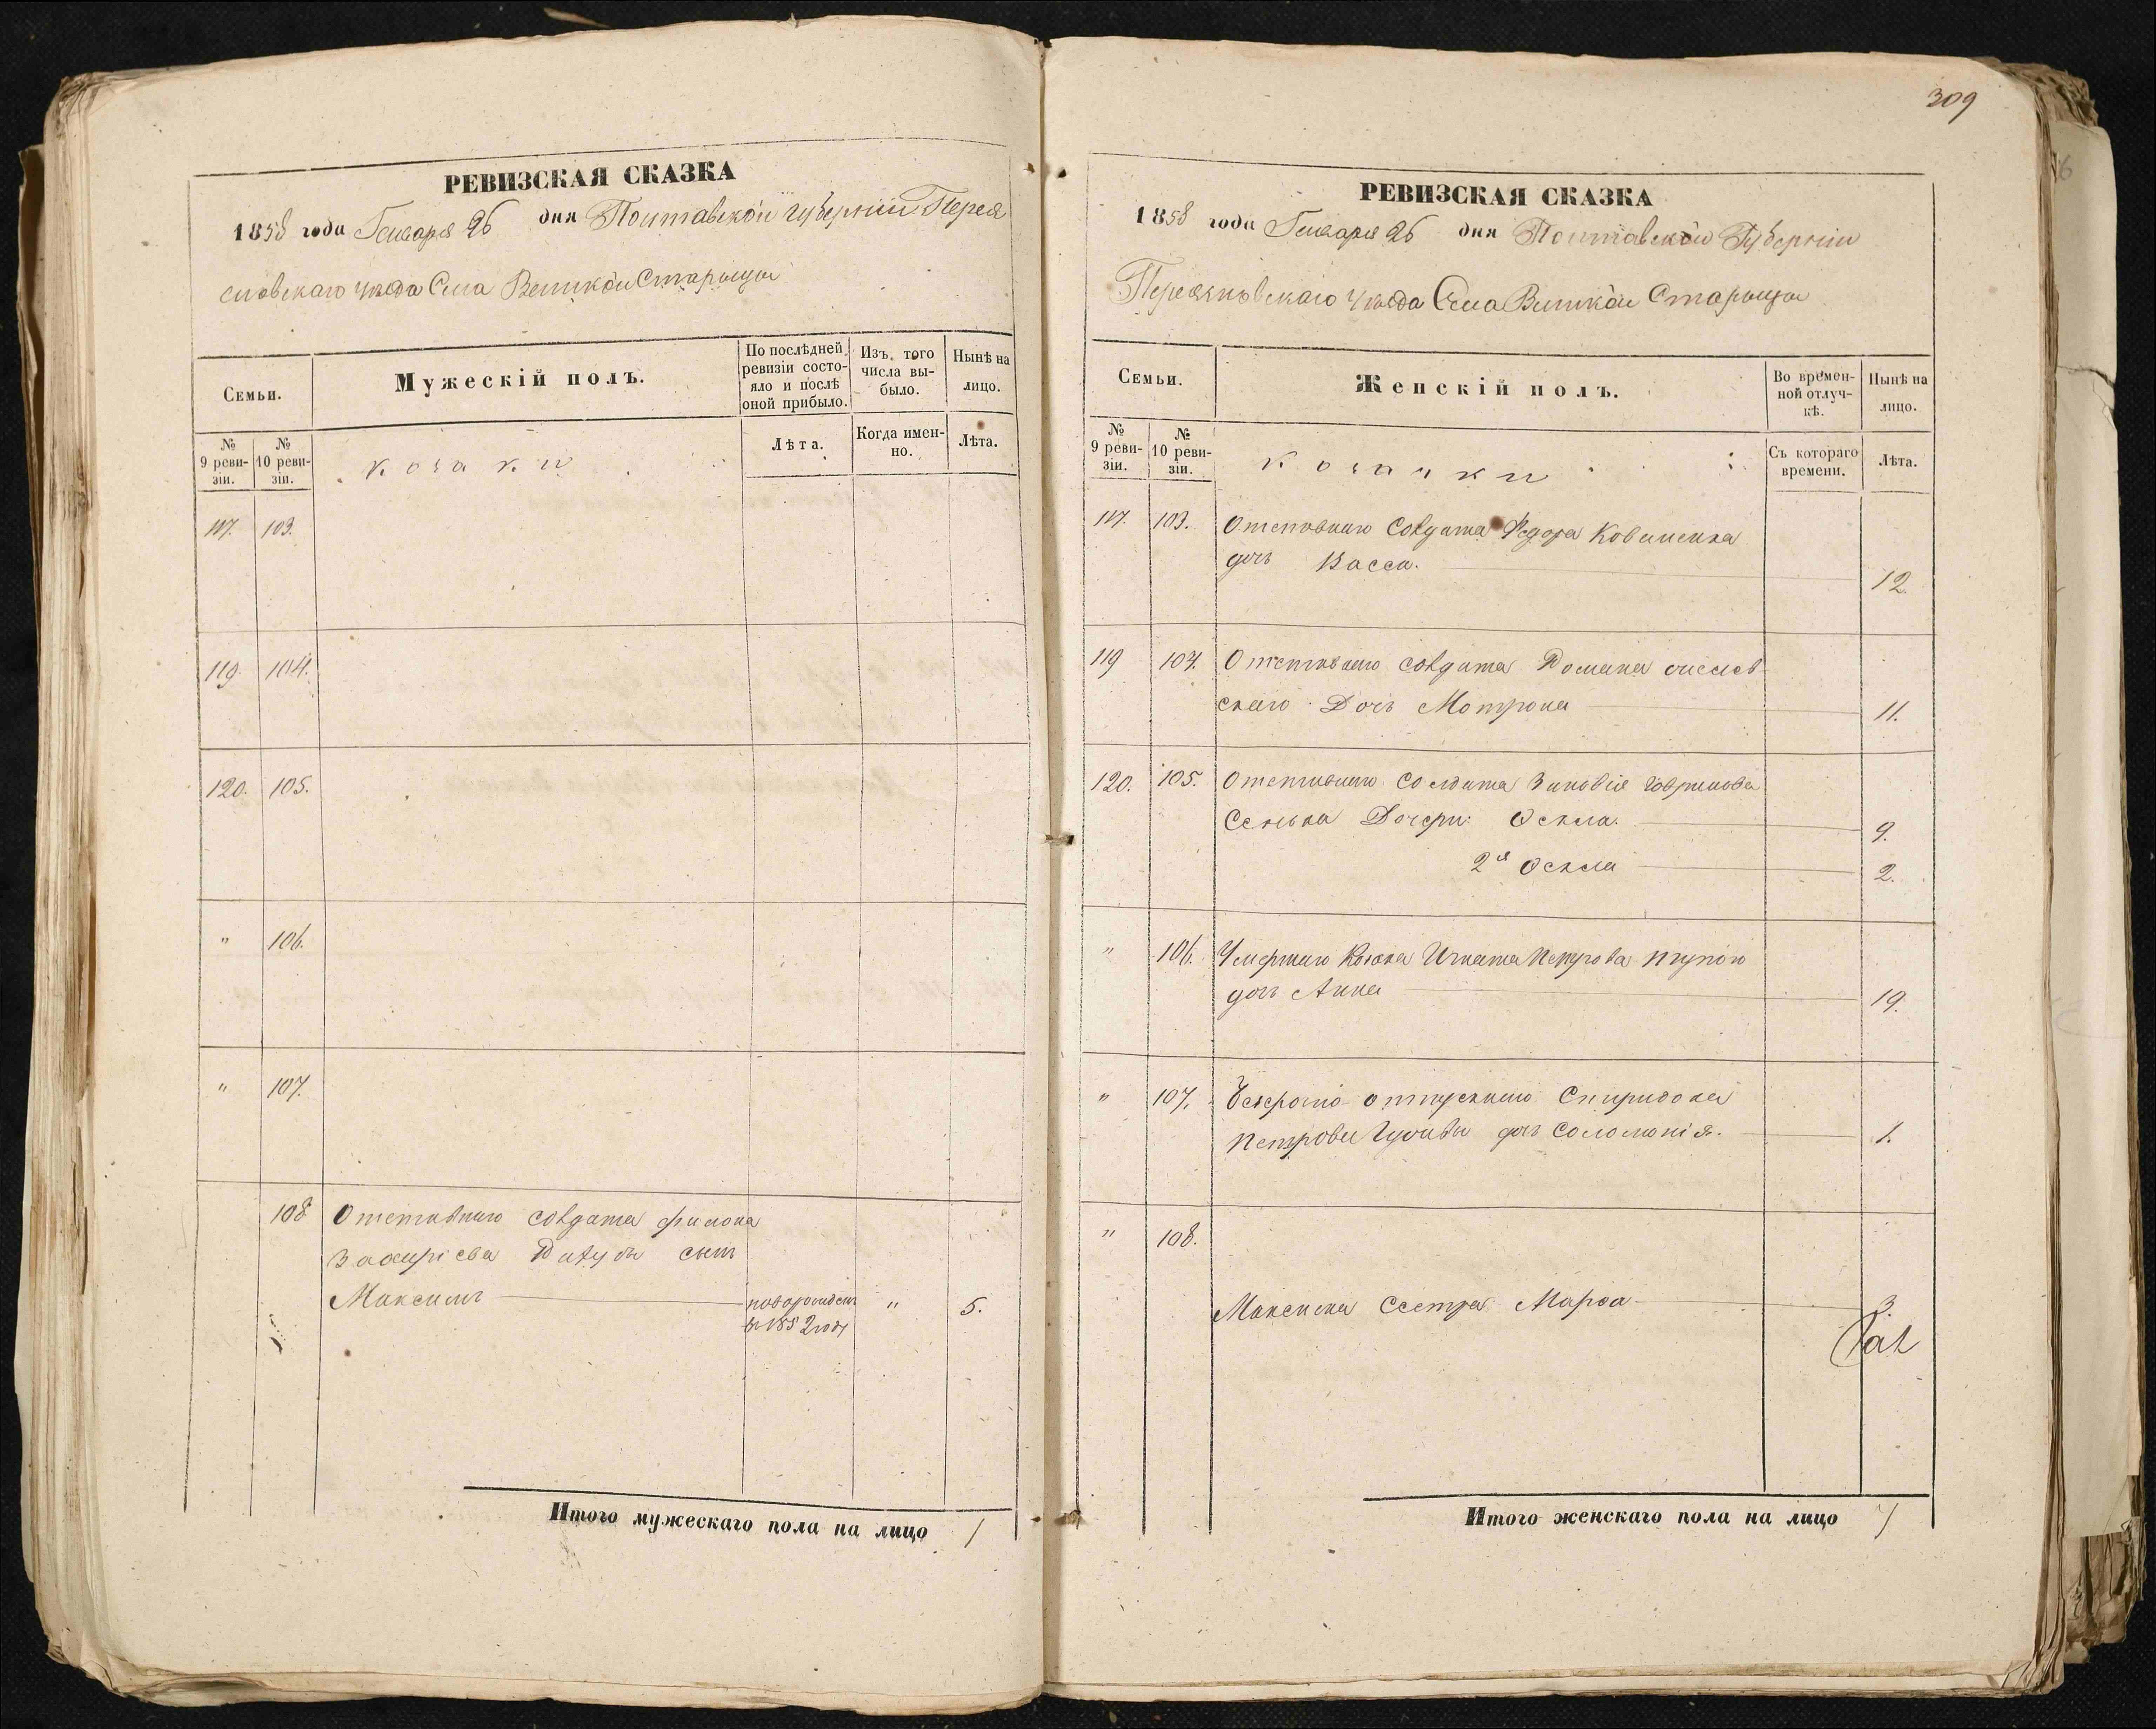 309
РЕВИЗСКАЯ СКАЗКА
1858 года Генваря 26 дня Полтавской губернии Перея
славскаго уезда Села Великой Старицы
Семьи.
Мужескій полъ.
По послѣдней ревизіи состояло и послѣ оной прибыло.
Изъ того числа выбыло.
Нынѣ на лицо.
№ 9 ревизіи.
№ 10 ревизіи.
козаки
Лѣта.
Когда именно.
Лѣта.
117. 103.
119. 104.
120. 105.
" 106.
" 107.
108 Отставнаго солдата Филона
Захаріева сынъ
Максимъ новорожден " 5.
в 1852 году
Итого мужескаго пола на лицо 1
РЕВИЗСКАЯ СКАЗКА
1858 года Генваря 26 дня Полтавской Губернии
Переясловскаго уезда Села Великой Старицы
Семьи.
Женскій полъ.
Во временной отлучкѣ.
Нынѣ на лицо.
№ 9 ревизіи.
№ 10 ревизіи.
козачки
Съ котораго времени.
Лѣта.
117. 103. Отставнаго Солдата Федора
дочь Васса. 12.
119 104. Отставнаго солдата Романа
скаго Дочь Мотрона 11.
120. 105. Отставнаго Солдата Зиновія
Сенька Дочери: 9.
2я 2.
" 106. Умершаго Игната Петрова
дочь Анна 19.
" 107. отпускнаго Спиридона
Петрова дочь Соломонія. 1.
" 108.
Максима Сестра Марфа 3.
Итого женскаго пола на лицо 7